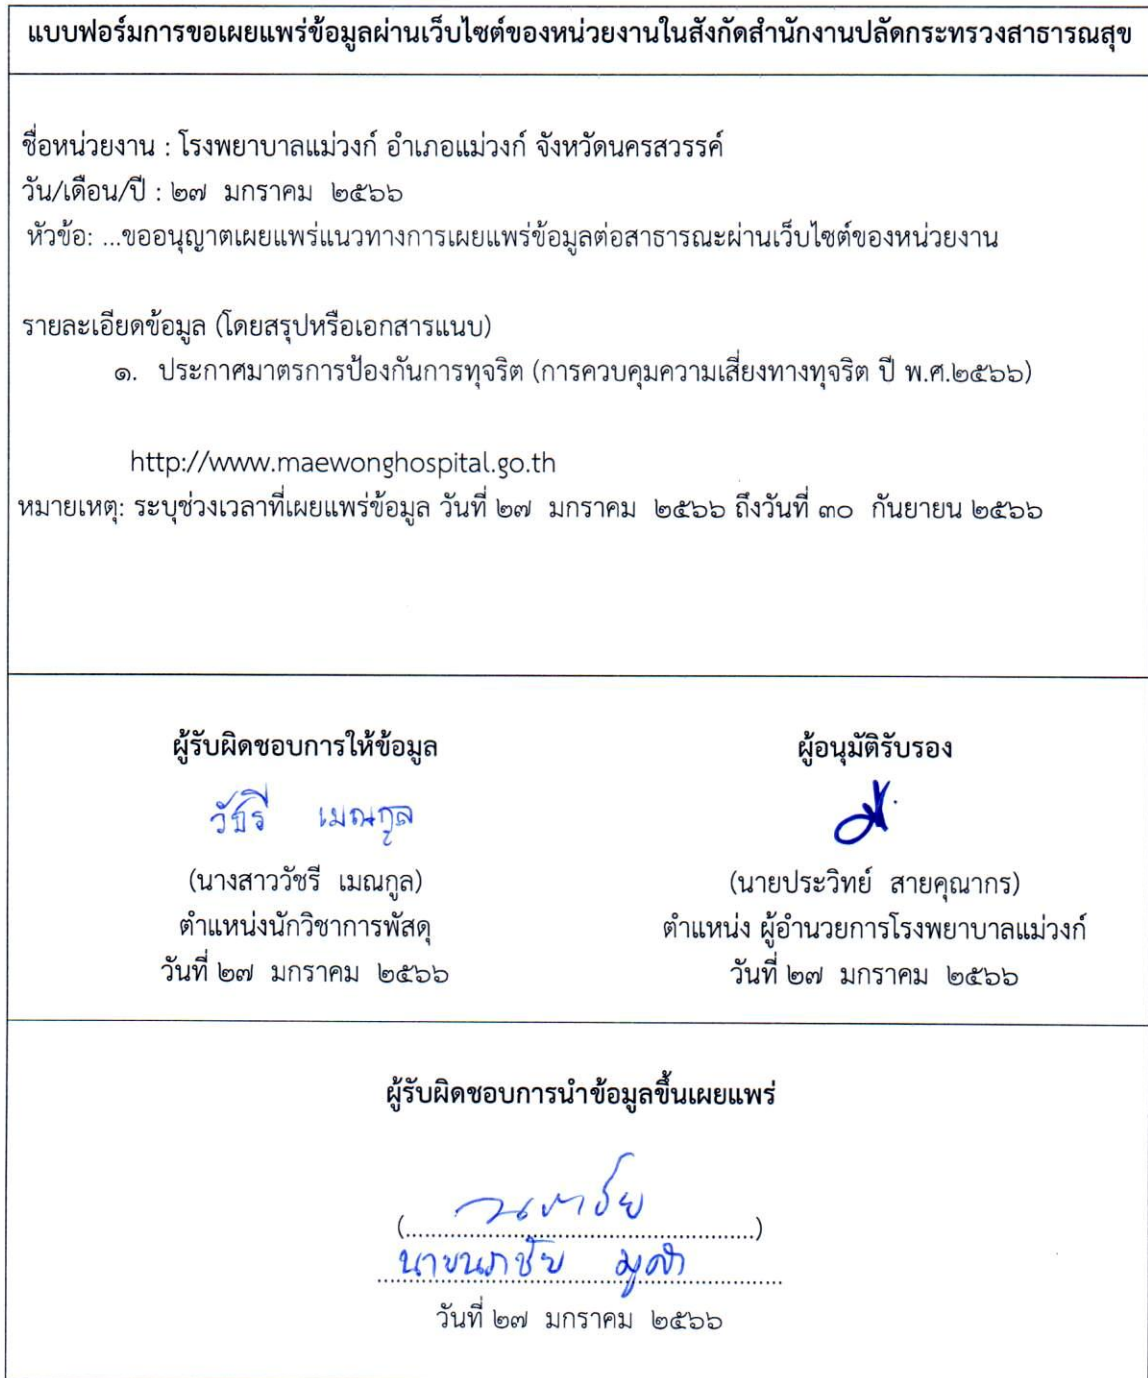 แบบฟอร์มการขอเผยแพร่ข้อมูลผ่านเว็บไซต์ของหน่วยงานในสังกัดสำนักงานปลัดกระทรวงสาธารณสุข
ชื่อหน่วยงาน : โรงพยาบาลแม่วงก์ อำเภอแม่วงก์ จังหวัดนครสวรรค์
วัน/เดือน/ปี : ๒๗ มกราคม ๒๕๖๖
หัวข้อ: ...ขออนุญาตเผยแพร่แนวทางการเผยแพร่ข้อมูลต่อสาธารณะผ่านเว็บไซต์ของหน่วยงาน
รายละเอียดข้อมูล (โดยสรุปหรือเอกสารแนบ)
๑. ประกาศมาตรการป้องกันการทุจริต (การควบคุมความเสี่ยงทางทุจริต ปี พ.ศ.๒๕๖๖)
http://www.maewonghospital.go.th
หมายเหตุ: ระบุช่วงเวลาที่เผยแพร่ข้อมูล วันที่ ๒๗ มกราคม ๒๕๖๖ ถึงวันที่ ๓๐ กันยายน ๒๕๖๖
ผู้รับผิดชอบการให้ข้อมูล
วัชรี เมณกูล
(นางสาววัชรี เมณกูล)
ตำแหน่งนักวิชาการพัสดุ
วันที่ ๒๗ มกราคม ๒๕๖๖
ผู้อนุมัติรับรอง
(นายประวิทย์ สายคุณากร)
ตำแหน่ง ผู้อำนวยการโรงพยาบาลแม่วงก์
วันที่ ๒๗ มกราคม ๒๕๖๖
ผู้รับผิดชอบการนำข้อมูลขึ้นเผยแพร่
(..........................................................)
วันที่ ๒๗ มกราคม ๒๕๖๖